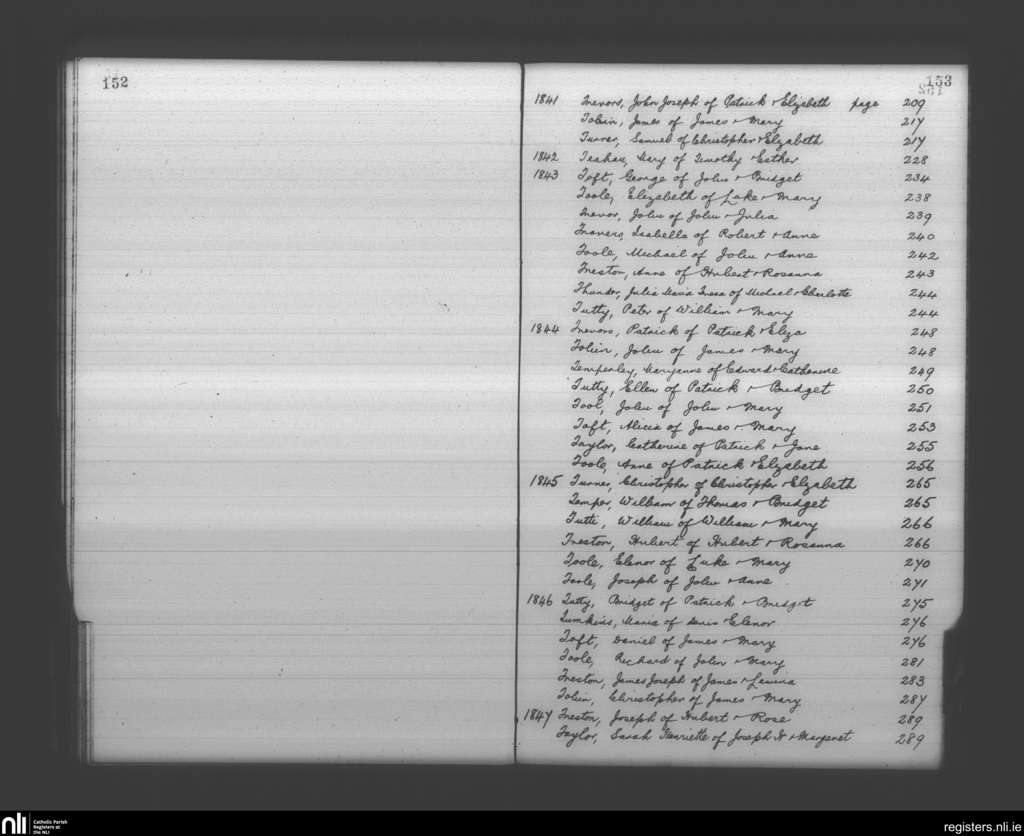 152
153
1841 Trevors, John Joseph of Patrick & Elizabeth page 209
Tobin, James of James & Mary 217
Turner, Samuel of Christopher & Elizabeth 217
1842 Teahan, Mary of Timothy & Esther 228
1843 Toft, George of John & Bridget 234
Toole, Elizabeth of Luke & Mary 238
Trevor, John of John & Julia 239
Travers, Isabella of Robert & Anne 240
Toole, Michael of John & Anne 242
Treston, Anne of Hubert & Rosanna 243
Thunder, Julia Maria Teresa of Michael & Charlotte 244
Tutty, Peter of William & Mary 244
1844 Trevors, Patrick of Patrick & Eliza 248
Tobin, John of James & Mary 248
Temperley, Maryanne of Edward & Catherine 249
Tutty, Ellen of Patrick & Bridget 250
Tool, John of John & Mary 251
Toft, Alicia of James & Mary 253
Taylor, Catherine of Patrick & Jane 255
Toole, Anne of Patrick & Elizabeth 256
1845 Turner, Christopher of Christopher & Elizabeth 265
Tempor, William of Thomas & Bridget 265
Tutti, William of William & Mary 266
Treston, Hubert of Hubert & Rosanna 266
Toole, Elenor of Luke & Mary 270
Toole, Joseph of John & Anne 271
1846 Tutty, Bridget of Patrick & Bridget 275
Tumkins, Maria of Denis & Elenor 276
Toft, Daniel of James & Mary 276
Toole, Richard of John & Mary 281
Treston, James Joseph of James & Lavina 283
Tobin, Christopher of James & Mary 287
1847 Treston, Joseph of Hubert & Rose 289
Taylor, Sarah Henriette of Joseph H & Margaret 289
nli Catholic Parish
Registers at
the NLI
registers.nli.ie